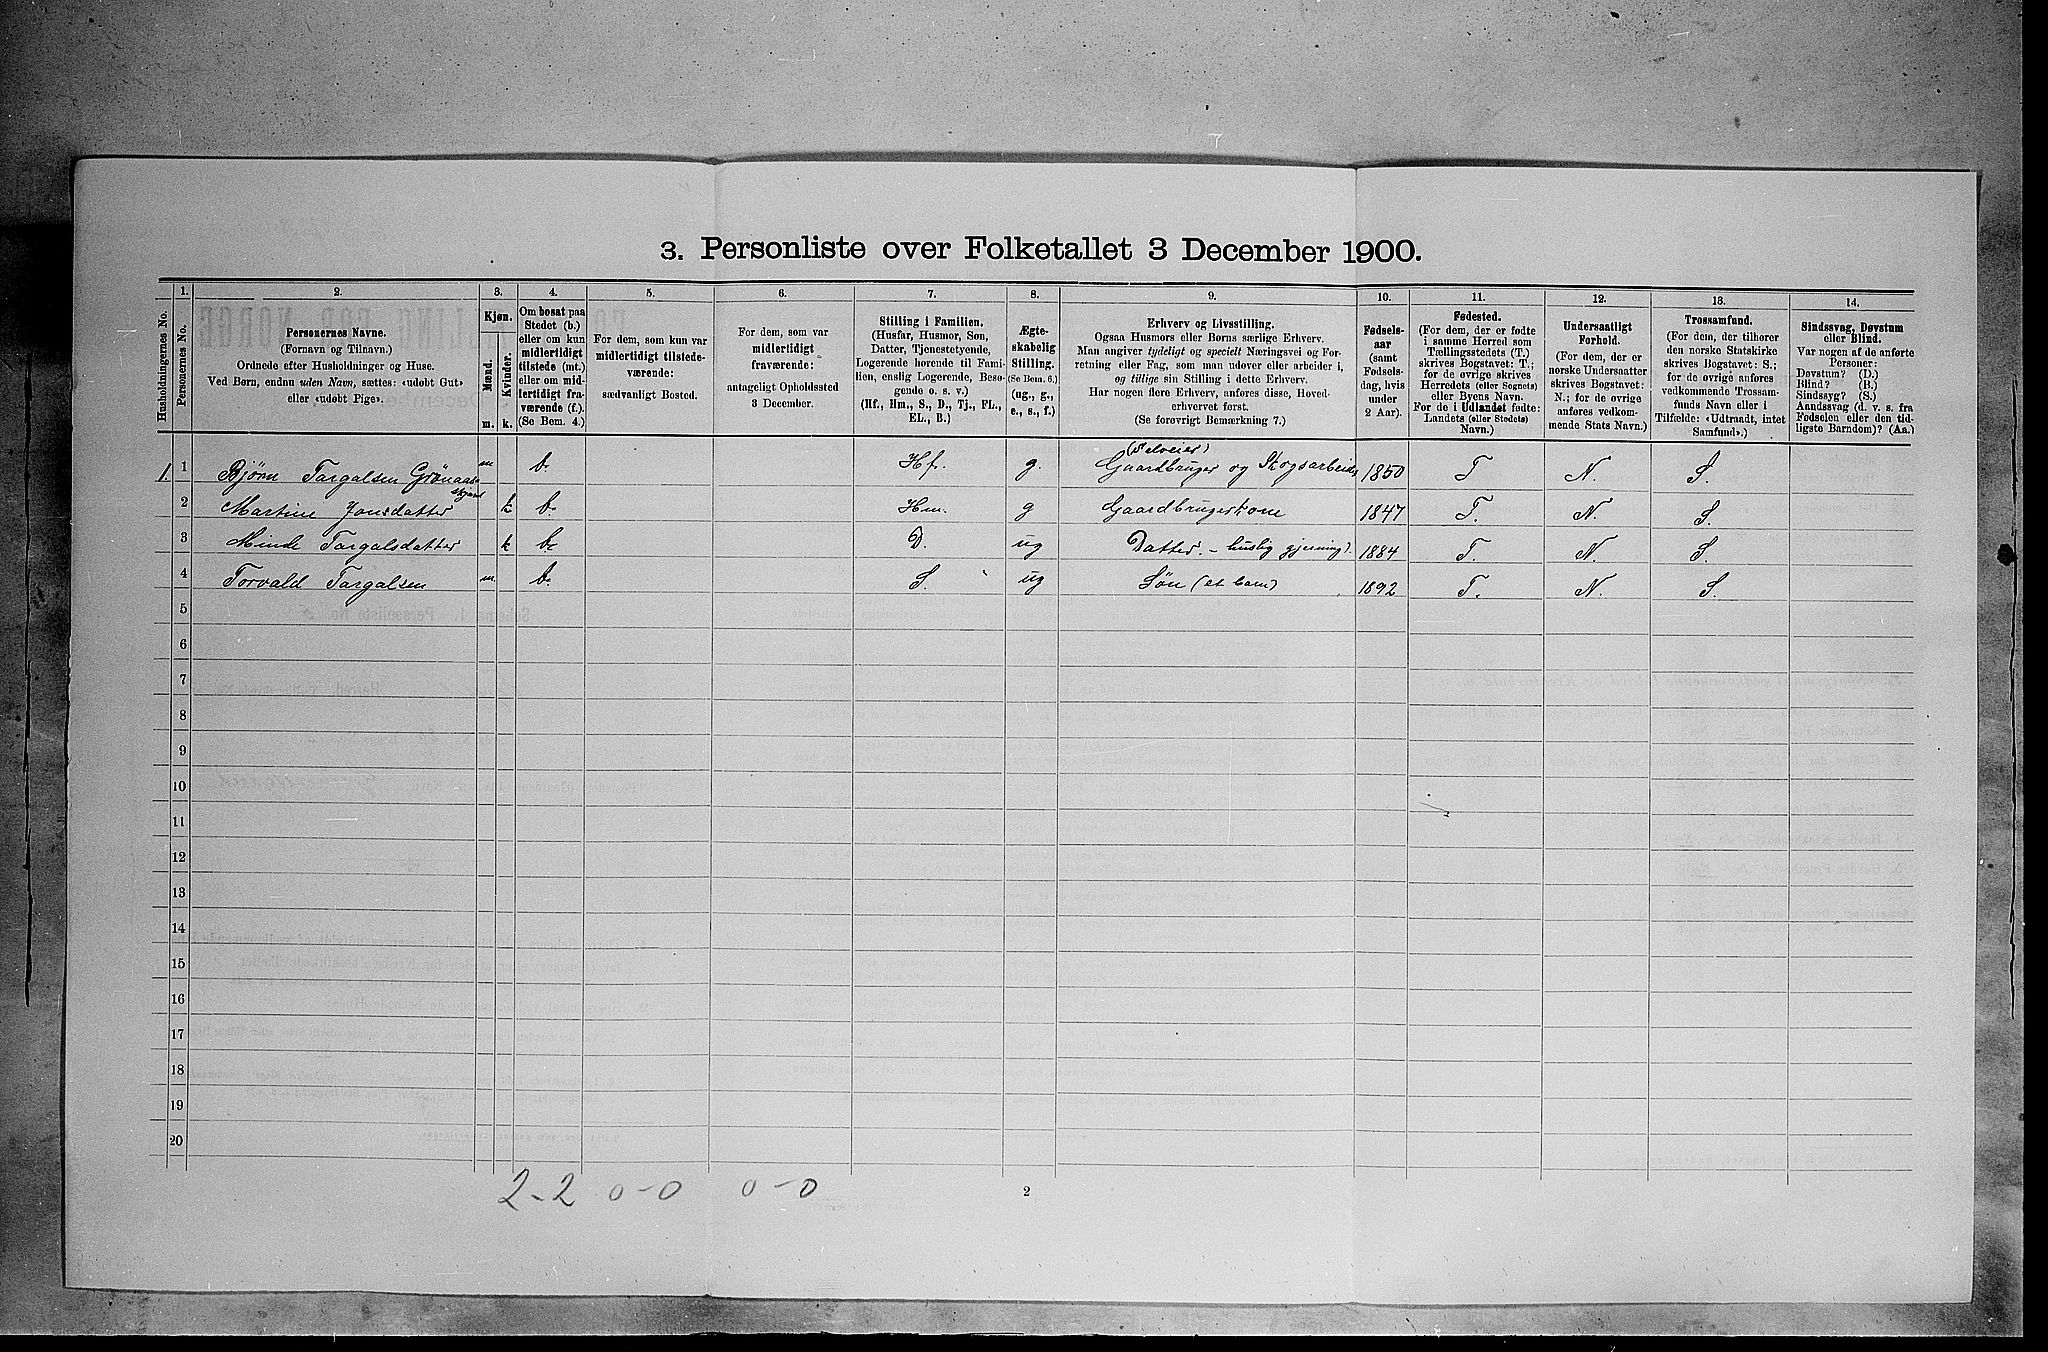 3. Personliste over Folketallet 3 December 1900.
Husholdningernes No.
1.
Personernes No.
2.
Personernes Navne.
(Fornavn og Tilnavn.)
Ordnede efter Husholdninger og Huse.
Ved Børn, endnu uden Navn, sættes: «udøbt Gut»
eller «udøbt Pige».
3.
Kjøn.
Mænd.
Kvinder.
m. k.
4.
Om bosat paa
Stedet (b.)
eller om kun
midlertidigt
tilstede (mt.)
eller om mid-
lertidigt fra-
værende (f.).
(Se Bem. 4.)
5.
For dem, som kun var
midlertidigt tilstede-
værende:
sædvanligt Bosted.
6.
For dem, som var
midlertidigt
fraværende:
antageligt Opholdssted
3 December.
7.
Stilling i Familien.
(Husfar, Husmor, Søn,
Datter, Tjenestetyende,
Logerende hørende til Fami-
lien, enslig Logerende, Besø-
gende o. s. v.)
(Hf., Hm., S., D., Tj., FL.,
EL., B.)
8.
Ægte-
skabelig
Stilling.
(Se Bem. 6.)
(ug., g.,
e., s., f.)
9.
Erhverv og Livsstilling.
Ogsaa Husmors eller Børns særlige Erhverv.
Man angiver tydeligt og specielt Næringsvei og For-
retning eller Fag, som man udøver eller arbeider i,
og tillige sin Stilling i dette Erhverv.
Har nogen flere Erhverv, anføres disse, Hoved-
erhvervet først.
(Se forøvrigt Bemærkning 7.)
10.
Fødsels-
aar
(samt
Fødsels-
dag, hvis
under
2 Aar).
11.
Fødested.
(For dem, der er fødte
i samme Herred som
Tællingsstedets (T.)
skrives Bogstavet: T.;
for de øvrige skrives
Herredets (eller Sognets)
eller Byens Navn.
For de i Udlandet fødte:
Landets (eller Stedets)
Navn.)
12.
Undersaatligt
Forhold.
(For dem, der er
norske Undersaatter
skrives Bogstavet:
N.; for de øvrige
anføres vedkom-
mende Stats Navn.)
13.
Trossamfund.
(For dem, der tilhører
den norske Statskirke
skrives Bogstavet: S.;
for de øvrige anføres
vedkommende Trossam-
funds Navn eller i
Tilfælde: «Udtraadt, intet
Samfund».)
14.
Sindssvag, Døvstum
eller Blind.
Var nogen af de anførte
Personer:
Døvstum? (D.)
Blind? (B.)
Sindssyg? (S.)
Aandssvag (d. v. s. fra
Fødselen eller den tid-
ligste Barndom)? (Aa.)
1. 1 Bjørn Targalsen Grönaas- m b. Hf. g. (Selveier) Gaardbruger og Skogsarbeider 1850 T N. S.
2 Martine Jonsdatter k b. Hm. g Gaardbrugerkone 1847 T. N. S.
3 Minde Targalsdatter k b. D. ug Datter. - huslig gjerning). 1884 T. N. S.
4 Torvald Targalsen m b. S. ug Søn (et barn) 1892 T. N. S.
5
6
7
8
9
10
11
12
13
14
15
16
17
18
19
20
2-2 0-0 0-0
2